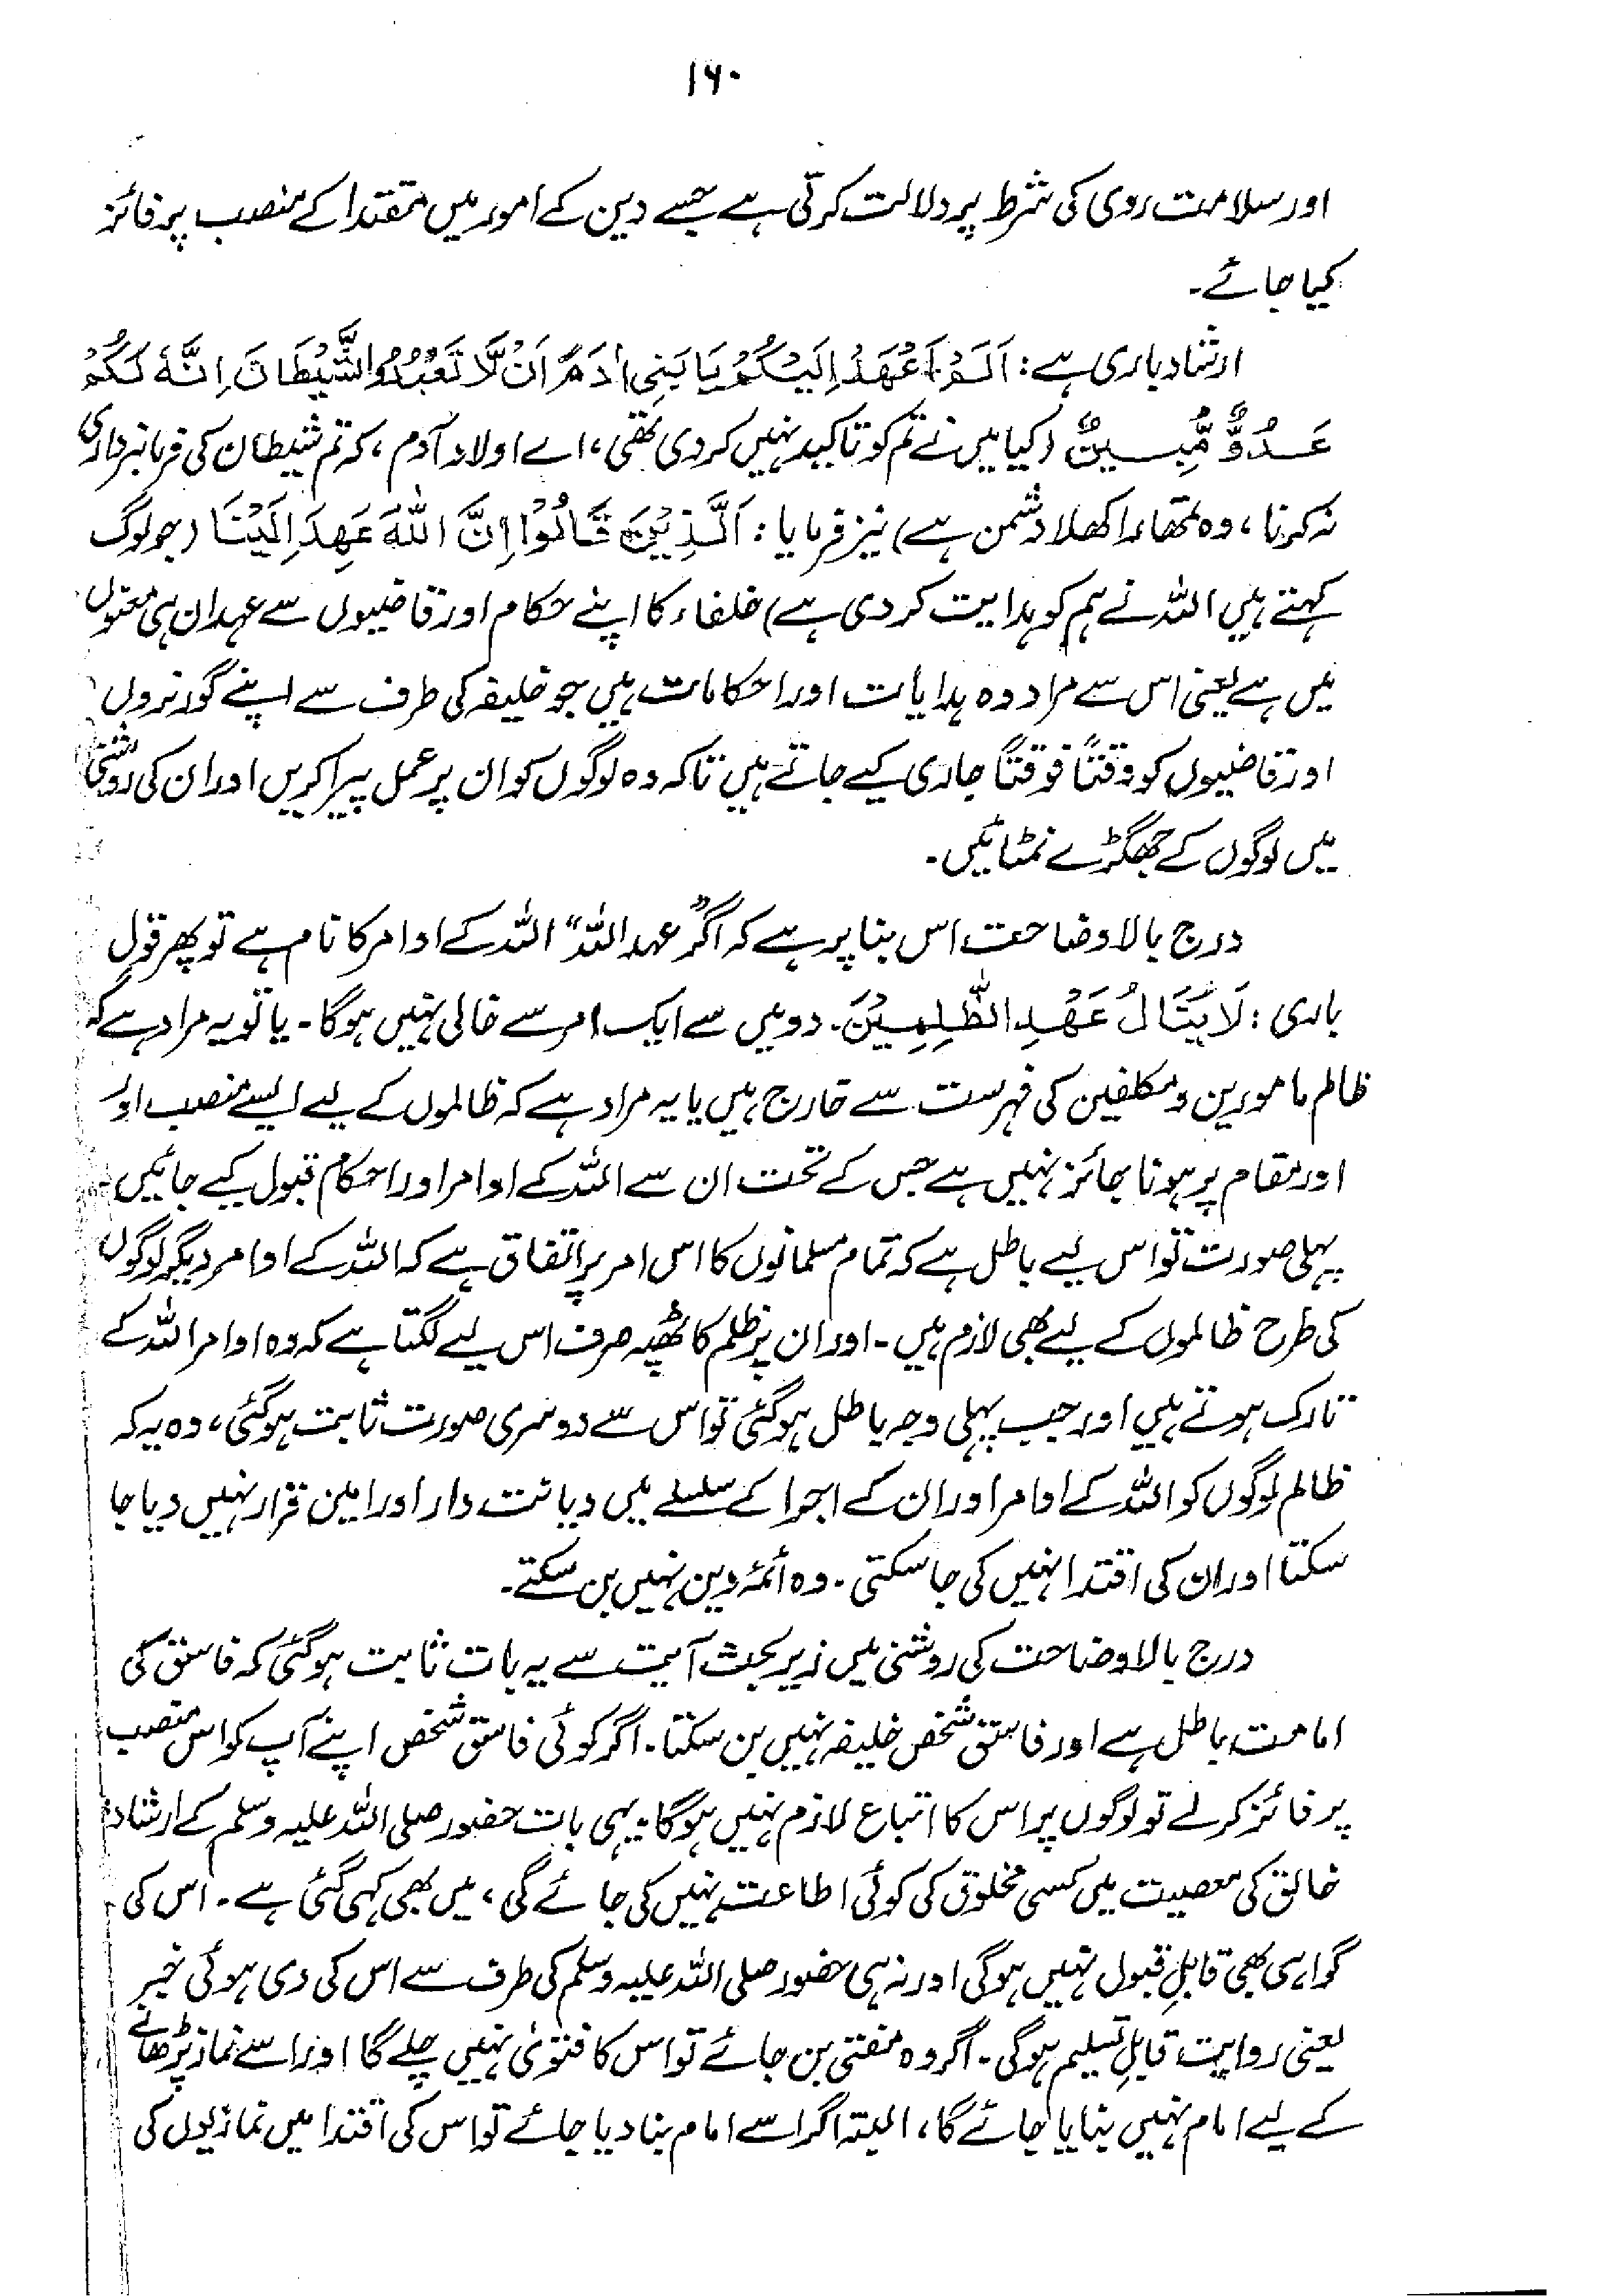 ۱۶۰
اور سلامت روی کی شرط پر دلالت کرتی ہے جسے دین کے امور میں مقتدا کے منصب پر فائز
کیا جائے۔
ارشاد باری ہے: اَلَمْ اَعْهَدْ اِلَيْكُمْ يَا بَنِي اٰدَمَ اَنْ لَّا تَعْبُدُوا الشَّيْطَانَ اِنَّهٗ لَكُمْ
عَدُوٌّ مُّبِيْنٌ (کیا میں نے تم کو تاکید نہیں کر دی تھی، اے اولاد آدم، کہ تم شیطان کی فرمانبرداری
نہ کرنا، وہ تمھارا کھلا دشمن ہے) نیز فرمایا: اَلَّذِيْنَ قَالُوْا اِنَّ اللّٰهَ عَهِدَ اِلَيْنَا (جو لوگ
کہتے ہیں اللہ نے ہم کو ہدایت کر دی ہے) خلفاء کا اپنے حکام اور قاضیوں سے عہد ان ہی معنوں
میں ہے یعنی اس سے مراد وہ ہدایات اور احکامات ہیں جو خلیفہ کی طرف سے اپنے گورنروں
اور قاضیوں کو وقتاً فوقتاً جاری کیے جاتے ہیں تاکہ وہ لوگوں کو ان پر عمل پیرا کریں اور ان کی روشنی
میں لوگوں کے جھگڑے نمٹائیں۔
درج بالا وضاحت اس بنا پر ہے کہ اگر "عہد اللہ" اللہ کے اوامر کا نام ہے تو پھر قول
باری: لَا يَنَالُ عَهْدِ الظّٰلِمِيْنَ۔ دو میں سے ایک امر سے خالی نہیں ہوگا۔ یا تو یہ مراد ہے کہ
ظالم مامورین و مکلفین کی فہرست سے خارج ہیں یا یہ مراد ہے کہ ظالموں کے لیے ایسے منصب اور
اور مقام پر ہونا جائز نہیں ہے جس کے تحت ان سے اللہ کے اوامر اور احکام قبول کیے جائیں۔
پہلی صورت تو اس لیے باطل ہے کہ تمام مسلمانوں کا اس امر پر اتفاق ہے کہ اللہ کے اوامر دیگر لوگوں
کی طرح ظالموں کے لیے بھی لازم ہیں۔ اور ان پر ظلم کا ٹھپہ صرف اس لیے لگتا ہے کہ وہ اوامر اللہ کے
تارک ہوتے ہیں اور جب پہلی وجہ باطل ہو گئی تو اس سے دوسری صورت ثابت ہو گئی، وہ یہ کہ
ظالم لوگوں کو اللہ کے اوامر اور ان کے اجرا کے سلسلے میں دیانت دار اور امین قرار نہیں دیا جا
سکتا اور ان کی اقتدا نہیں کی جا سکتی۔ وہ ائمہ دین نہیں بن سکتے۔
درج بالا وضاحت کی روشنی میں زیر بحث آیت سے یہ بات ثابت ہو گئی کہ فاسق کی
امامت باطل ہے اور فاسق شخص خلیفہ نہیں بن سکتا۔ اگر کوئی فاسق شخص اپنے آپ کو اس منصب
پر فائز کر لے تو لوگوں پر اس کا اتباع لازم نہیں ہوگا۔ یہی بات حضور صلی اللہ علیہ وسلم کے ارشاد:
خالق کی معصیت میں کسی مخلوق کی کوئی اطاعت نہیں کی جائے گی، میں بھی کہی گئی ہے۔ اس کی
گواہی بھی قابلِ قبول نہیں ہوگی اور نہ ہی حضور صلی اللہ علیہ وسلم کی طرف سے اس کی دی ہوئی خبر
یعنی روایت قابلِ تسلیم ہوگی۔ اگر وہ مفتی بن جائے تو اس کا فتویٰ نہیں چلے گا اور اسے نماز پڑھانے
کے لیے امام نہیں بنایا جائے گا، البتہ اگر اسے امام بنا دیا جائے تو اس کی اقتدا میں نمازیوں کی